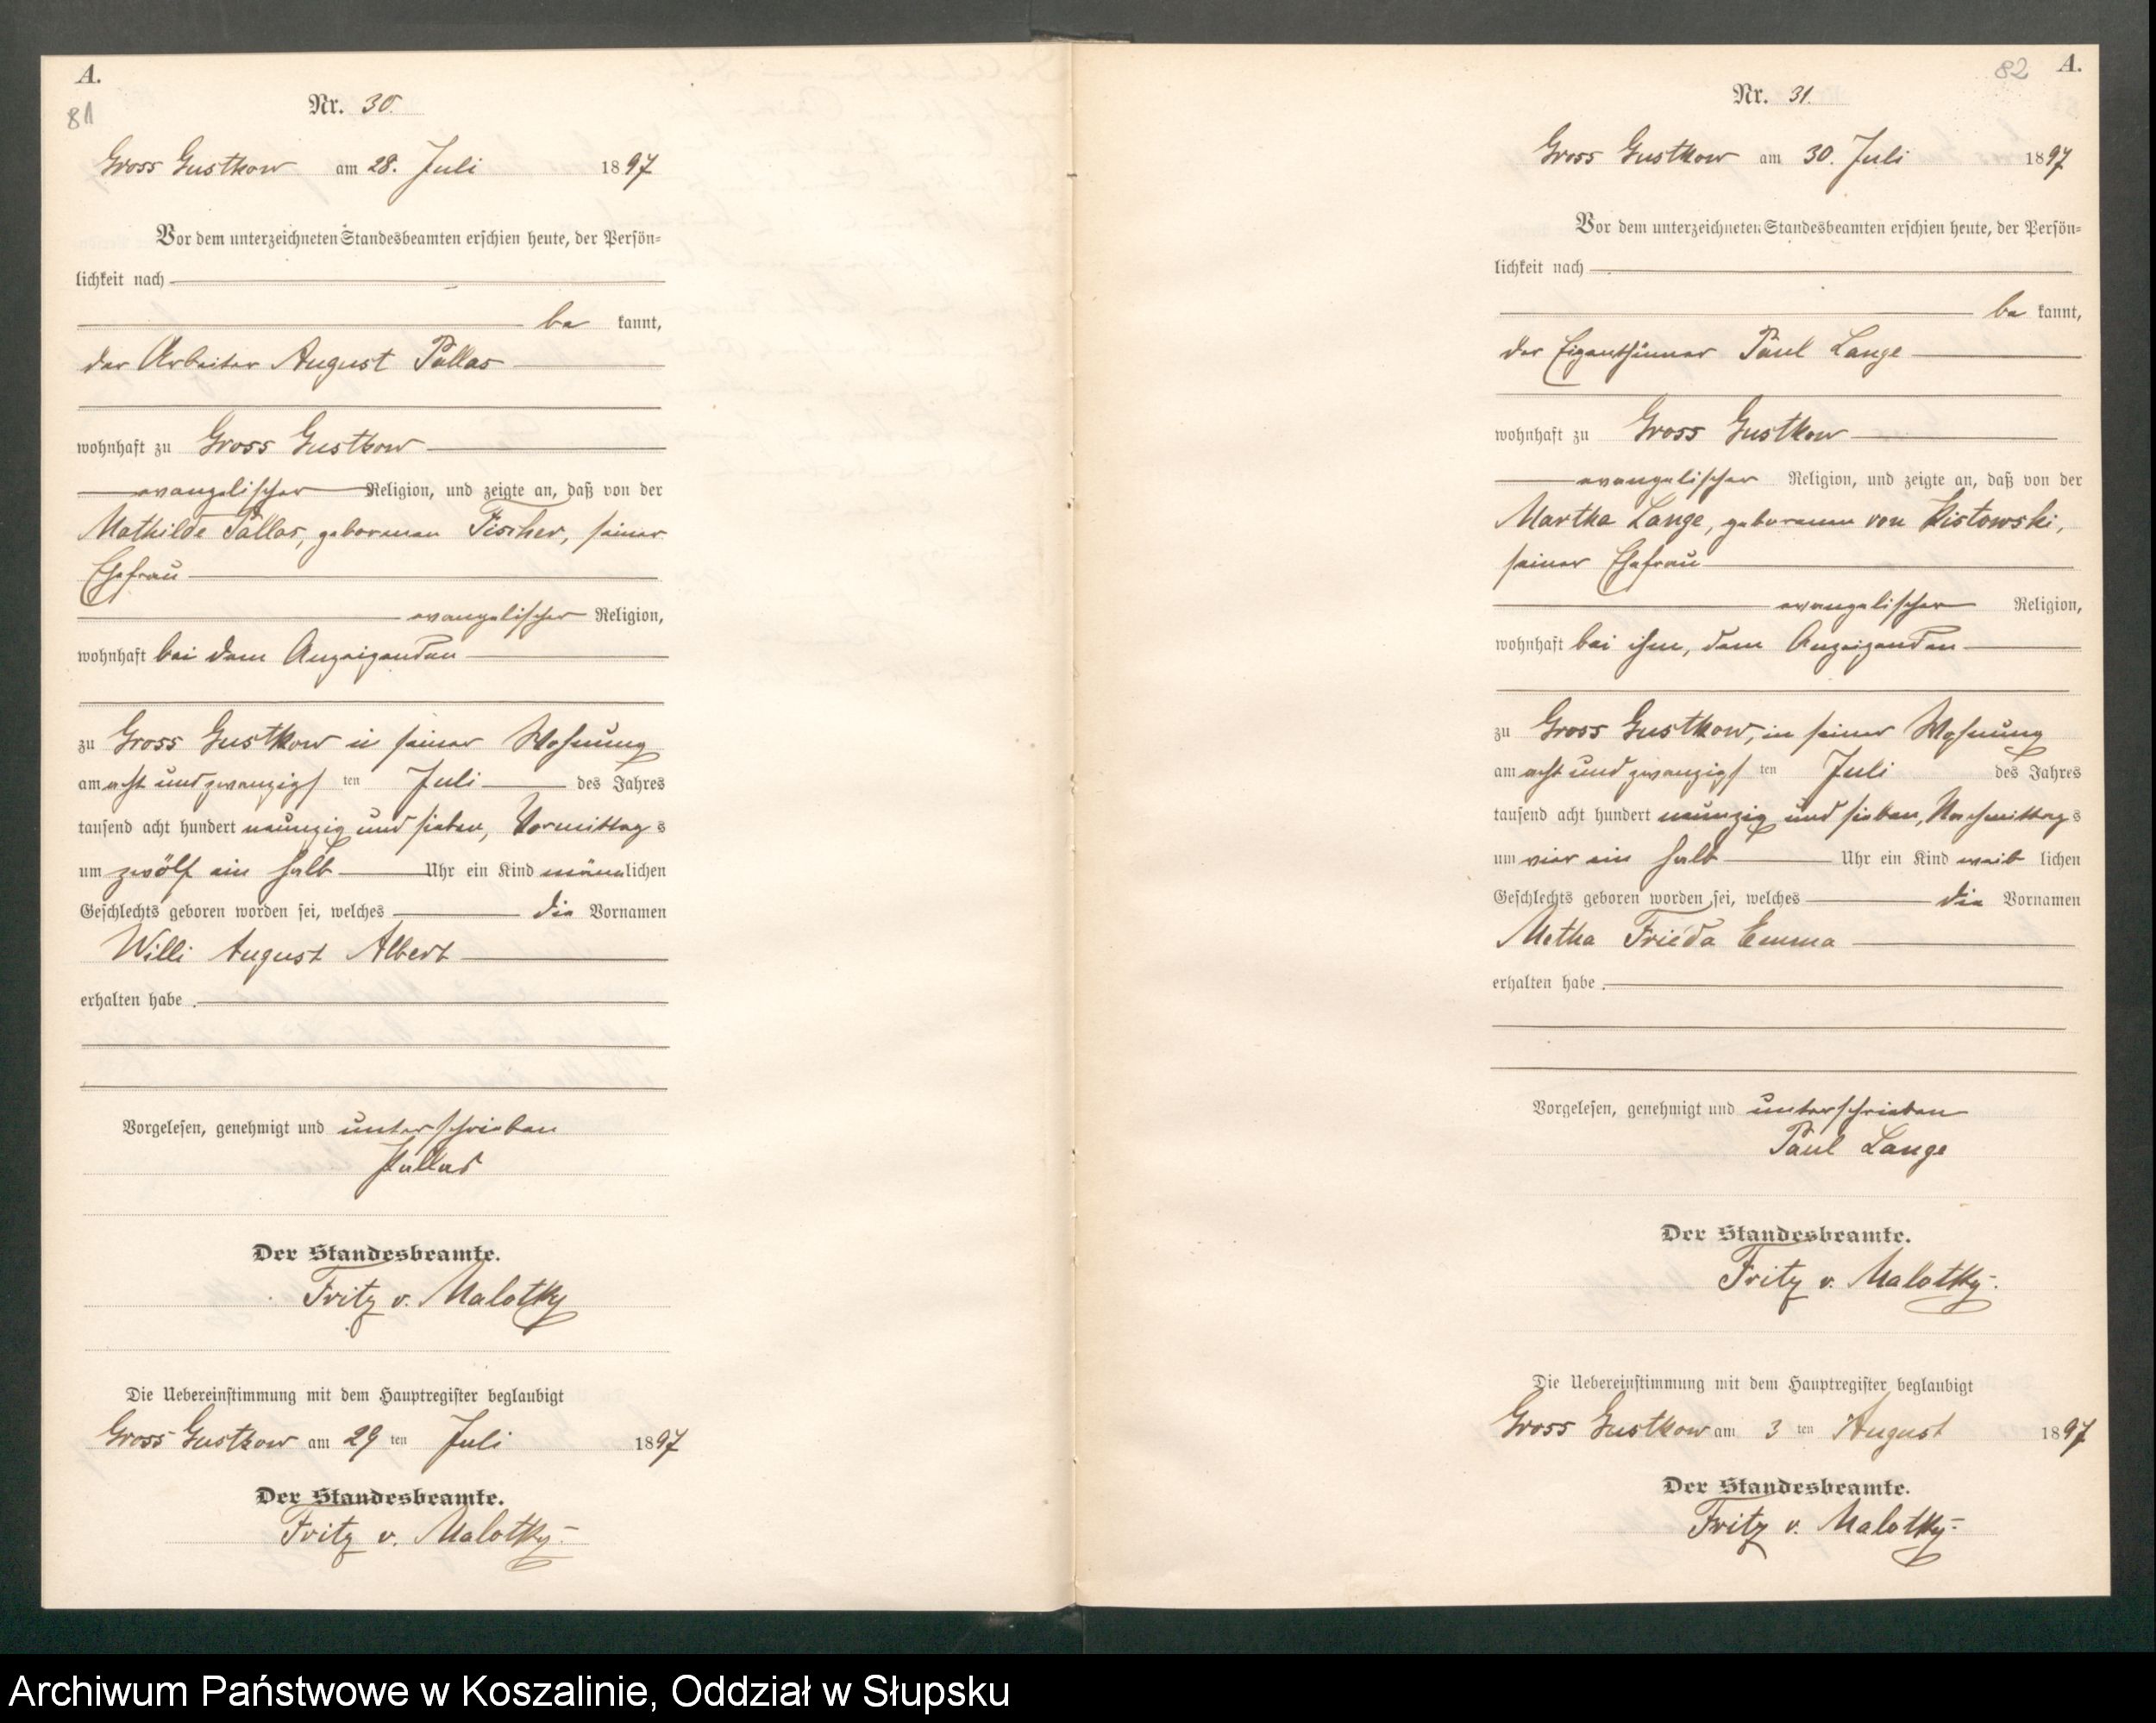 A.
81
Nr. 30.
Gross Gustkow am 28. Juli 1897
Vor dem unterzeichneten Standesbeamten erschien heute, der Persön=
lichkeit nach
be kannt,
der Arbeiter August Pallas
wohnhaft zu Gross Gustkow
evangelischer Religion, und zeigte an, daß von der
Mathilde Pallas, geborenen Fischer, seiner
Ehefrau
evangelischer Religion,
wohnhaft bei dem Anzeigenden
zu Gross Gustkow in seiner Wohnung
am acht und zwanzigs ten Juli des Jahres
tausend acht hundert neunzig und sieben, Vormittags
um zwölf ein halb Uhr ein Kind männlichen
Geschlechts geboren worden sei, welches die Vornamen
Willi August Albert
erhalten habe.
Vorgelesen, genehmigt und unterschrieben
Pallas
Der Standesbeamte.
Fritz v. Malotky
Die Uebereinstimmung mit dem Hauptregister beglaubigt
Gross Gustkow am 29 ten Juli 1897
Der Standesbeamte.
Fritz v. Malotky.
82 A.
Nr. 31.
Gross Gustkow am 30. Juli 1897
Vor dem unterzeichneten Standesbeamten erschien heute, der Persön=
lichkeit nach
be kannt,
der Eigenthümer Paul Lange
wohnhaft zu Gross Gustkow
evangelischer Religion, und zeigte an, daß von der
Martha Lange, geborenen von Kistowski,
seiner Ehefrau
evangelischer Religion,
wohnhaft bei ihm, dem Anzeigenden
zu Gross Gustkow, in seiner Wohnung
am acht und zwanzigs ten Juli des Jahres
tausend acht hundert neunzig und sieben, Nachmittags
um vier ein halb Uhr ein Kind weib lichen
Geschlechts geboren worden sei, welches die Vornamen
Metha Frieda Emma
erhalten habe.
Vorgelesen, genehmigt und unterschrieben
Paul Lange
Der Standesbeamte.
Fritz v. Malotky.
Die Uebereinstimmung mit dem Hauptregister beglaubigt
Gross Gustkow am 3 ten August 1897
Der Standesbeamte.
Fritz v. Malotky.
Archiwum Państwowe w Koszalinie, Oddział w Słupsku